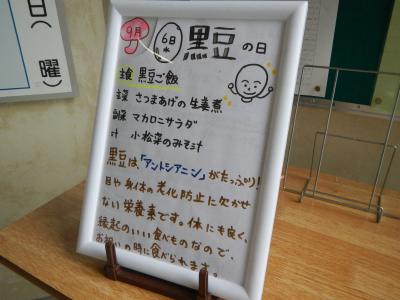 日(曜)
9月 6日 水 黒豆の日
主食 黒豆ご飯
主菜 さつまあげの生姜煮
副菜 マカロニサラダ
汁 小松菜のみそ汁
黒豆は、「アントシアニン」がたっぷり!
目や身体の老化防止に欠かせ
ない栄養素です。体にも良く、
縁起のいい食べものなので、
お祝いの時に食べられます。